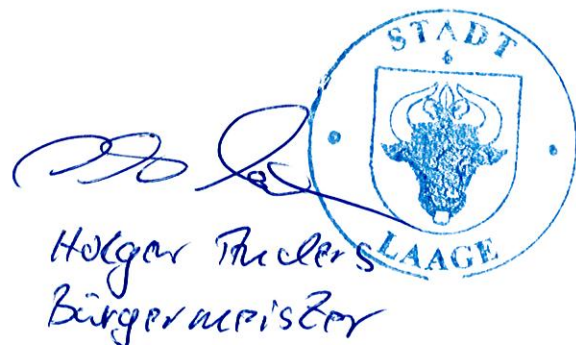 STADT
LAAGE
Holger Anders
Bürgermeister